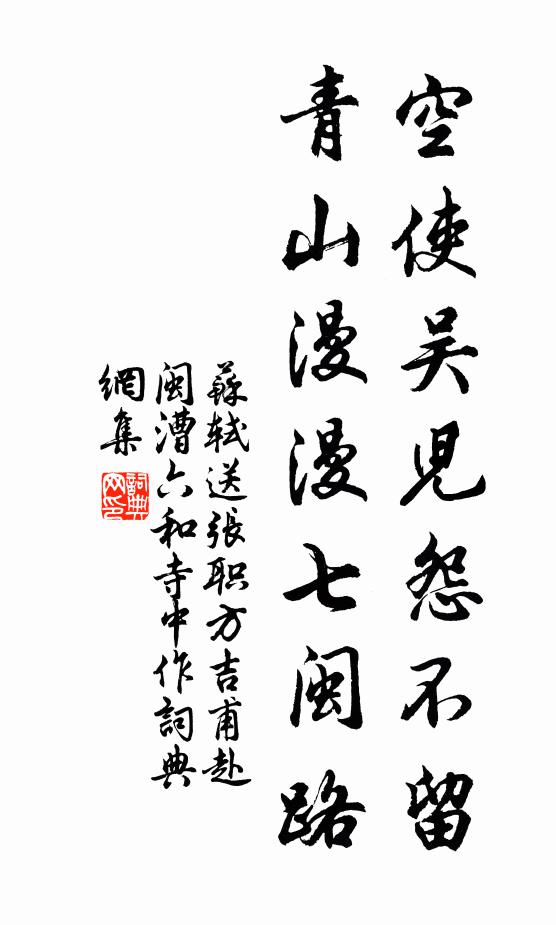 空使吴児怨不留
青山漫漫七闽路
蘇軾送張职方吉甫赴
闽漕六和寺中作詞典
網集
詞典
网印